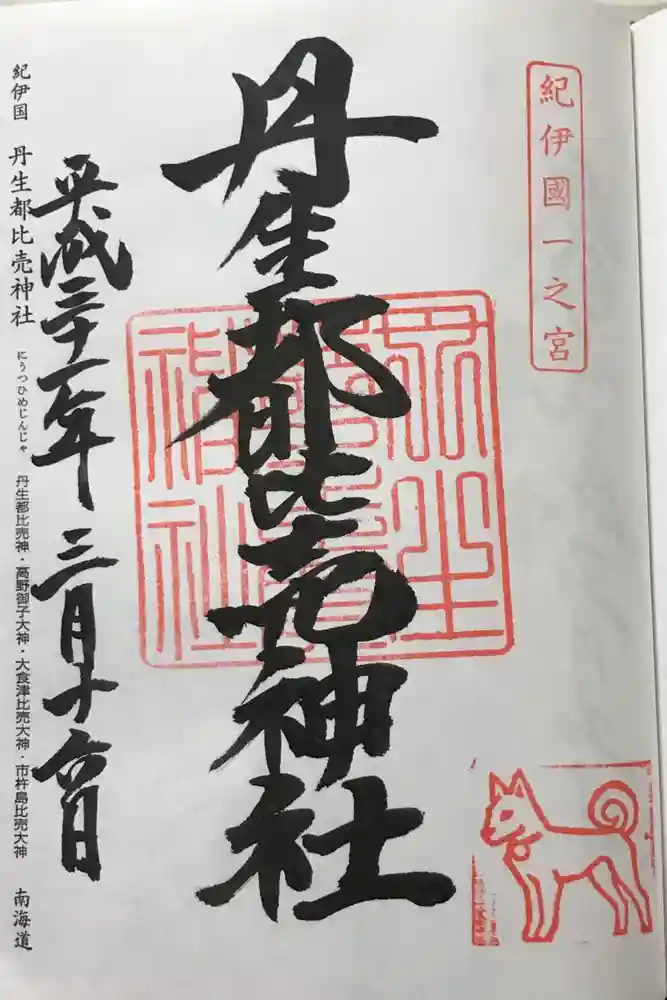 紀伊國一之宮
丹生都比売神社
丹生都比賣神社
平成三十一年三月十六日
紀伊国 丹生都比売神社 にうつひめじんじゃ 丹生都比売神・高野御子大神・大食津比売大神・市杵島比売大神 南海道